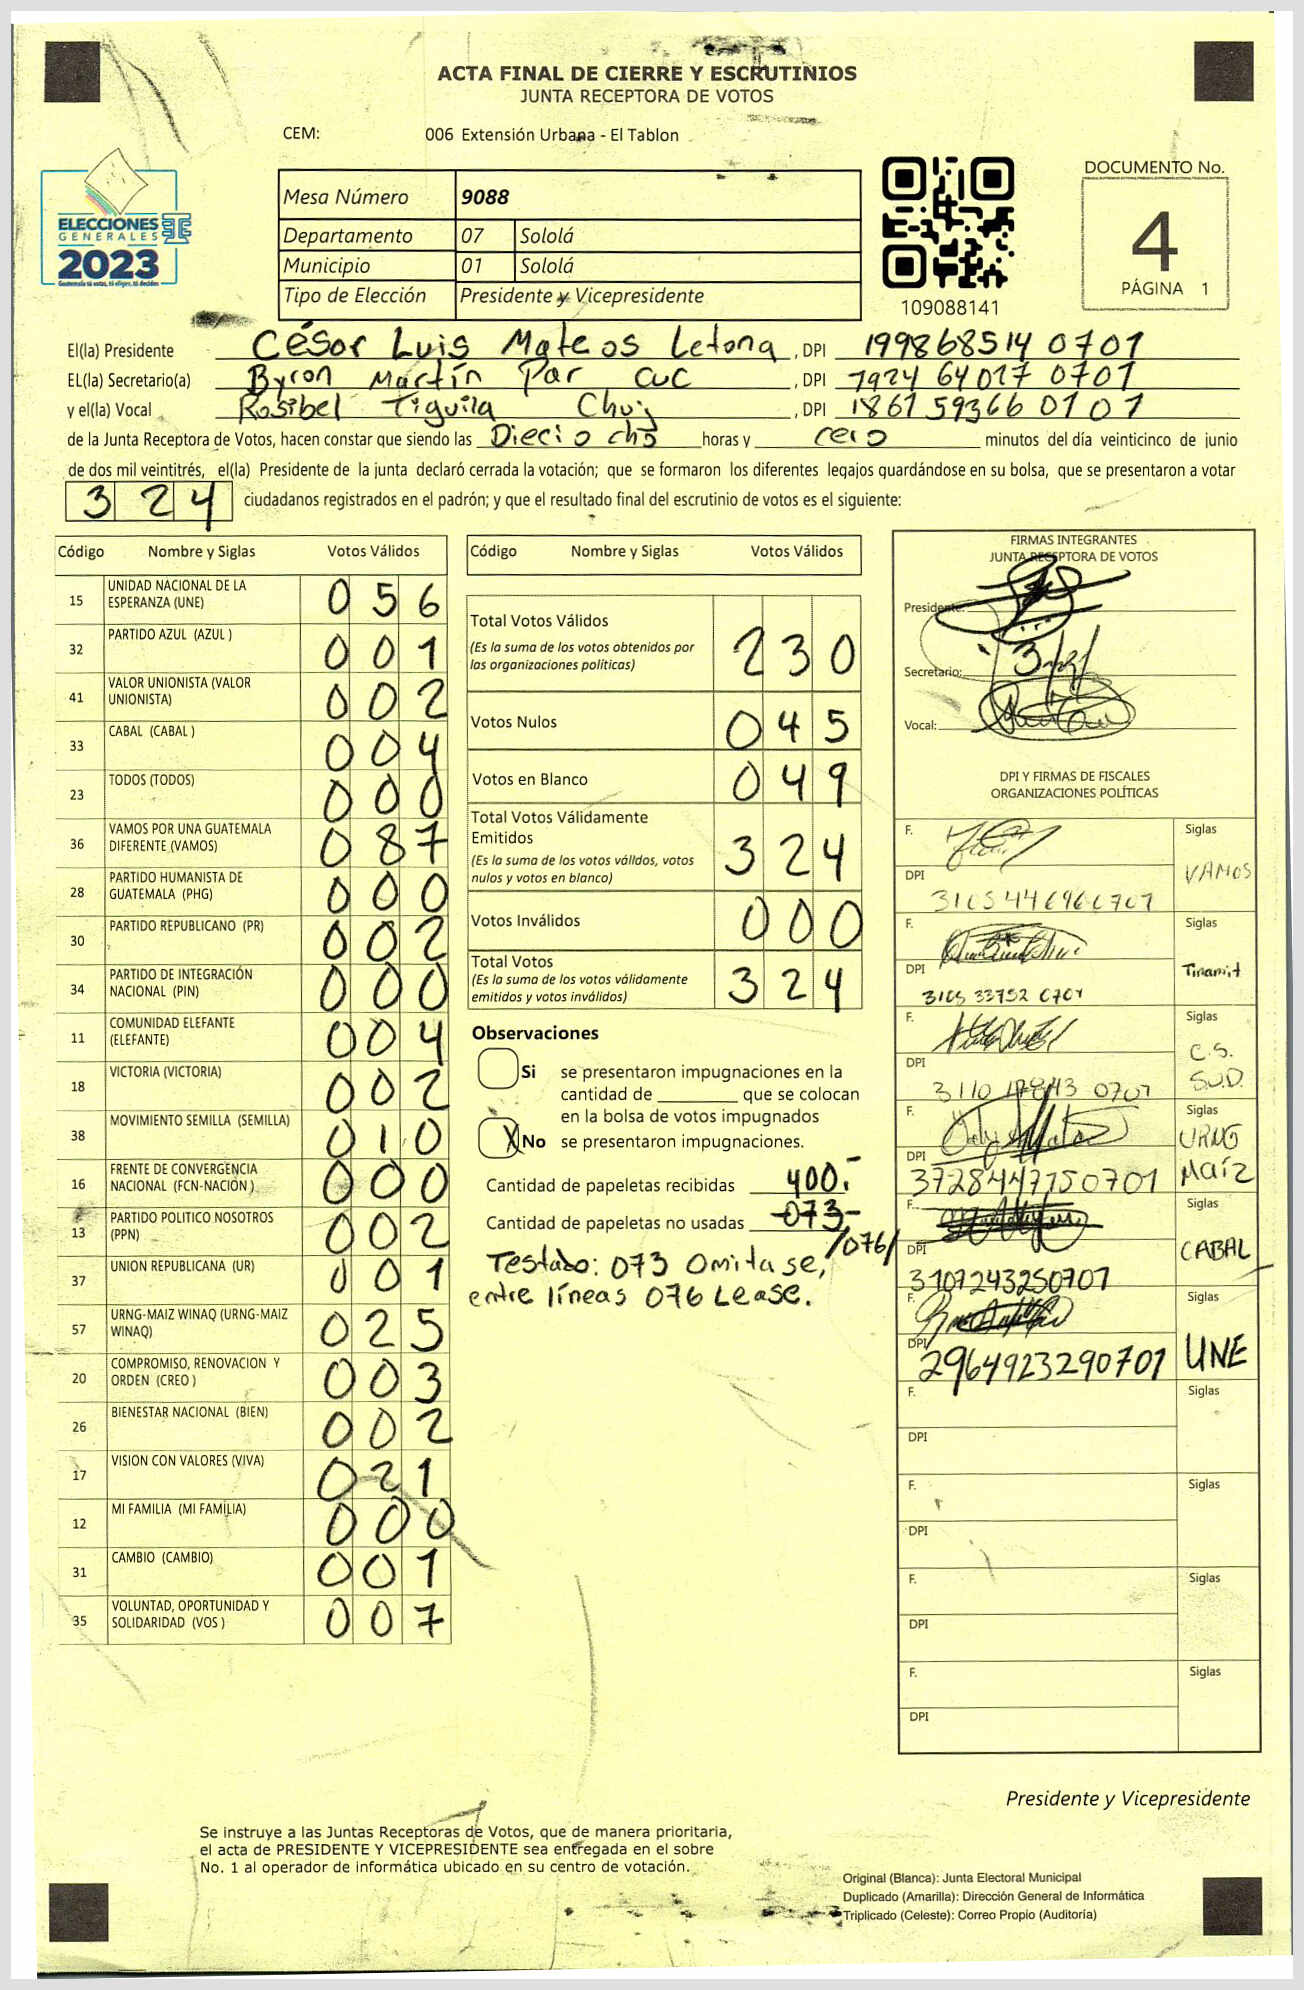 ACTA FINAL DE CIERRE Y ESCRUTINIOS
JUNTA RECEPTORA DE VOTOS
CEM: 006 Extensión Urbana - El Tablon
ELECCIONES
GENERALES
2023
Guatemala tú votas, tú eliges, tú decides
Mesa Número 9088
Departamento 07 Sololá
Municipio 01 Sololá
Tipo de Elección Presidente y Vicepresidente
109088141
DOCUMENTO No.
4
PÁGINA 1
El(la) Presidente César Luis Mateos Letona, DPI 199868514 0701
EL(la) Secretario(a) Byron Martín Par Cuc, DPI 7924 64017 0701
y el(la) Vocal Rosibel Tiguila Chuj, DPI 1861 59366 0701
de la Junta Receptora de Votos, hacen constar que siendo las Dieciocho horas y cero minutos del día veinticinco de junio
de dos mil veintitrés, el(la) Presidente de la junta declaró cerrada la votación; que se formaron los diferentes legajos quardándose en su bolsa, que se presentaron a votar
324 ciudadanos registrados en el padrón; y que el resultado final del escrutinio de votos es el siguiente:
Código Nombre y Siglas Votos Válidos
15 UNIDAD NACIONAL DE LA ESPERANZA (UNE) 056
32 PARTIDO AZUL (AZUL ) 001
41 VALOR UNIONISTA (VALOR UNIONISTA) 002
33 CABAL (CABAL ) 004
23 TODOS (TODOS) 000
36 VAMOS POR UNA GUATEMALA DIFERENTE (VAMOS) 087
28 PARTIDO HUMANISTA DE GUATEMALA (PHG) 000
30 PARTIDO REPUBLICANO (PR) 002
34 PARTIDO DE INTEGRACIÓN NACIONAL (PIN) 000
11 COMUNIDAD ELEFANTE (ELEFANTE) 004
18 VICTORIA (VICTORIA) 002
38 MOVIMIENTO SEMILLA (SEMILLA) 010
16 FRENTE DE CONVERGENCIA NACIONAL (FCN-NACIÓN ) 000
13 PARTIDO POLITICO NOSOTROS (PPN) 002
37 UNION REPUBLICANA (UR) 001
57 URNG-MAIZ WINAQ (URNG-MAIZ WINAQ) 025
20 COMPROMISO, RENOVACION Y ORDEN (CREO ) 003
26 BIENESTAR NACIONAL (BIEN) 002
17 VISION CON VALORES (VIVA) 021
12 MI FAMILIA (MI FAMILIA) 000
31 CAMBIO (CAMBIO) 001
35 VOLUNTAD, OPORTUNIDAD Y SOLIDARIDAD (VOS ) 007
Código Nombre y Siglas Votos Válidos
Total Votos Válidos 230
(Es la suma de los votos obtenidos por
las organizaciones políticas)
Votos Nulos 045
Votos en Blanco 049
Total Votos Válidamente
Emitidos 324
(Es la suma de los votos válidos, votos
nulos y votos en blanco)
Votos Inválidos 000
Total Votos 324
(Es la suma de los votos válidamente
emitidos y votos inválidos)
Observaciones
Si se presentaron impugnaciones en la
cantidad de ________ que se colocan
en la bolsa de votos impugnados
X No se presentaron impugnaciones.
Cantidad de papeletas recibidas 400.-
Cantidad de papeletas no usadas -073-
/076/
Testado: 073 Omitase,
entre líneas 076 Lease.
FIRMAS INTEGRANTES
JUNTA RECEPTORA DE VOTOS
Presidente:
Secretario:
Vocal:
DPI Y FIRMAS DE FISCALES
ORGANIZACIONES POLÍTICAS
F. Siglas
VAMOS
DPI
F. Siglas
Tinamit
DPI
3105 33752 0701
F. Siglas
C.S.
S.O.D.
DPI
3110 17843 0707
F. Siglas
URNG
Maíz
DPI
3728447750701
F. Siglas
CABAL
DPI
3107243250701
F. Siglas
UNE
DPI
2964923290701
F. Siglas
DPI
F. Siglas
DPI
F. Siglas
DPI
F. Siglas
DPI
Presidente y Vicepresidente
Se instruye a las Juntas Receptoras de Votos, que de manera prioritaria,
el acta de PRESIDENTE Y VICEPRESIDENTE sea entregada en el sobre
No. 1 al operador de informática ubicado en su centro de votación.
Original (Blanca): Junta Electoral Municipal
Duplicado (Amarilla): Dirección General de Informática
Triplicado (Celeste): Correo Propio (Auditoría)